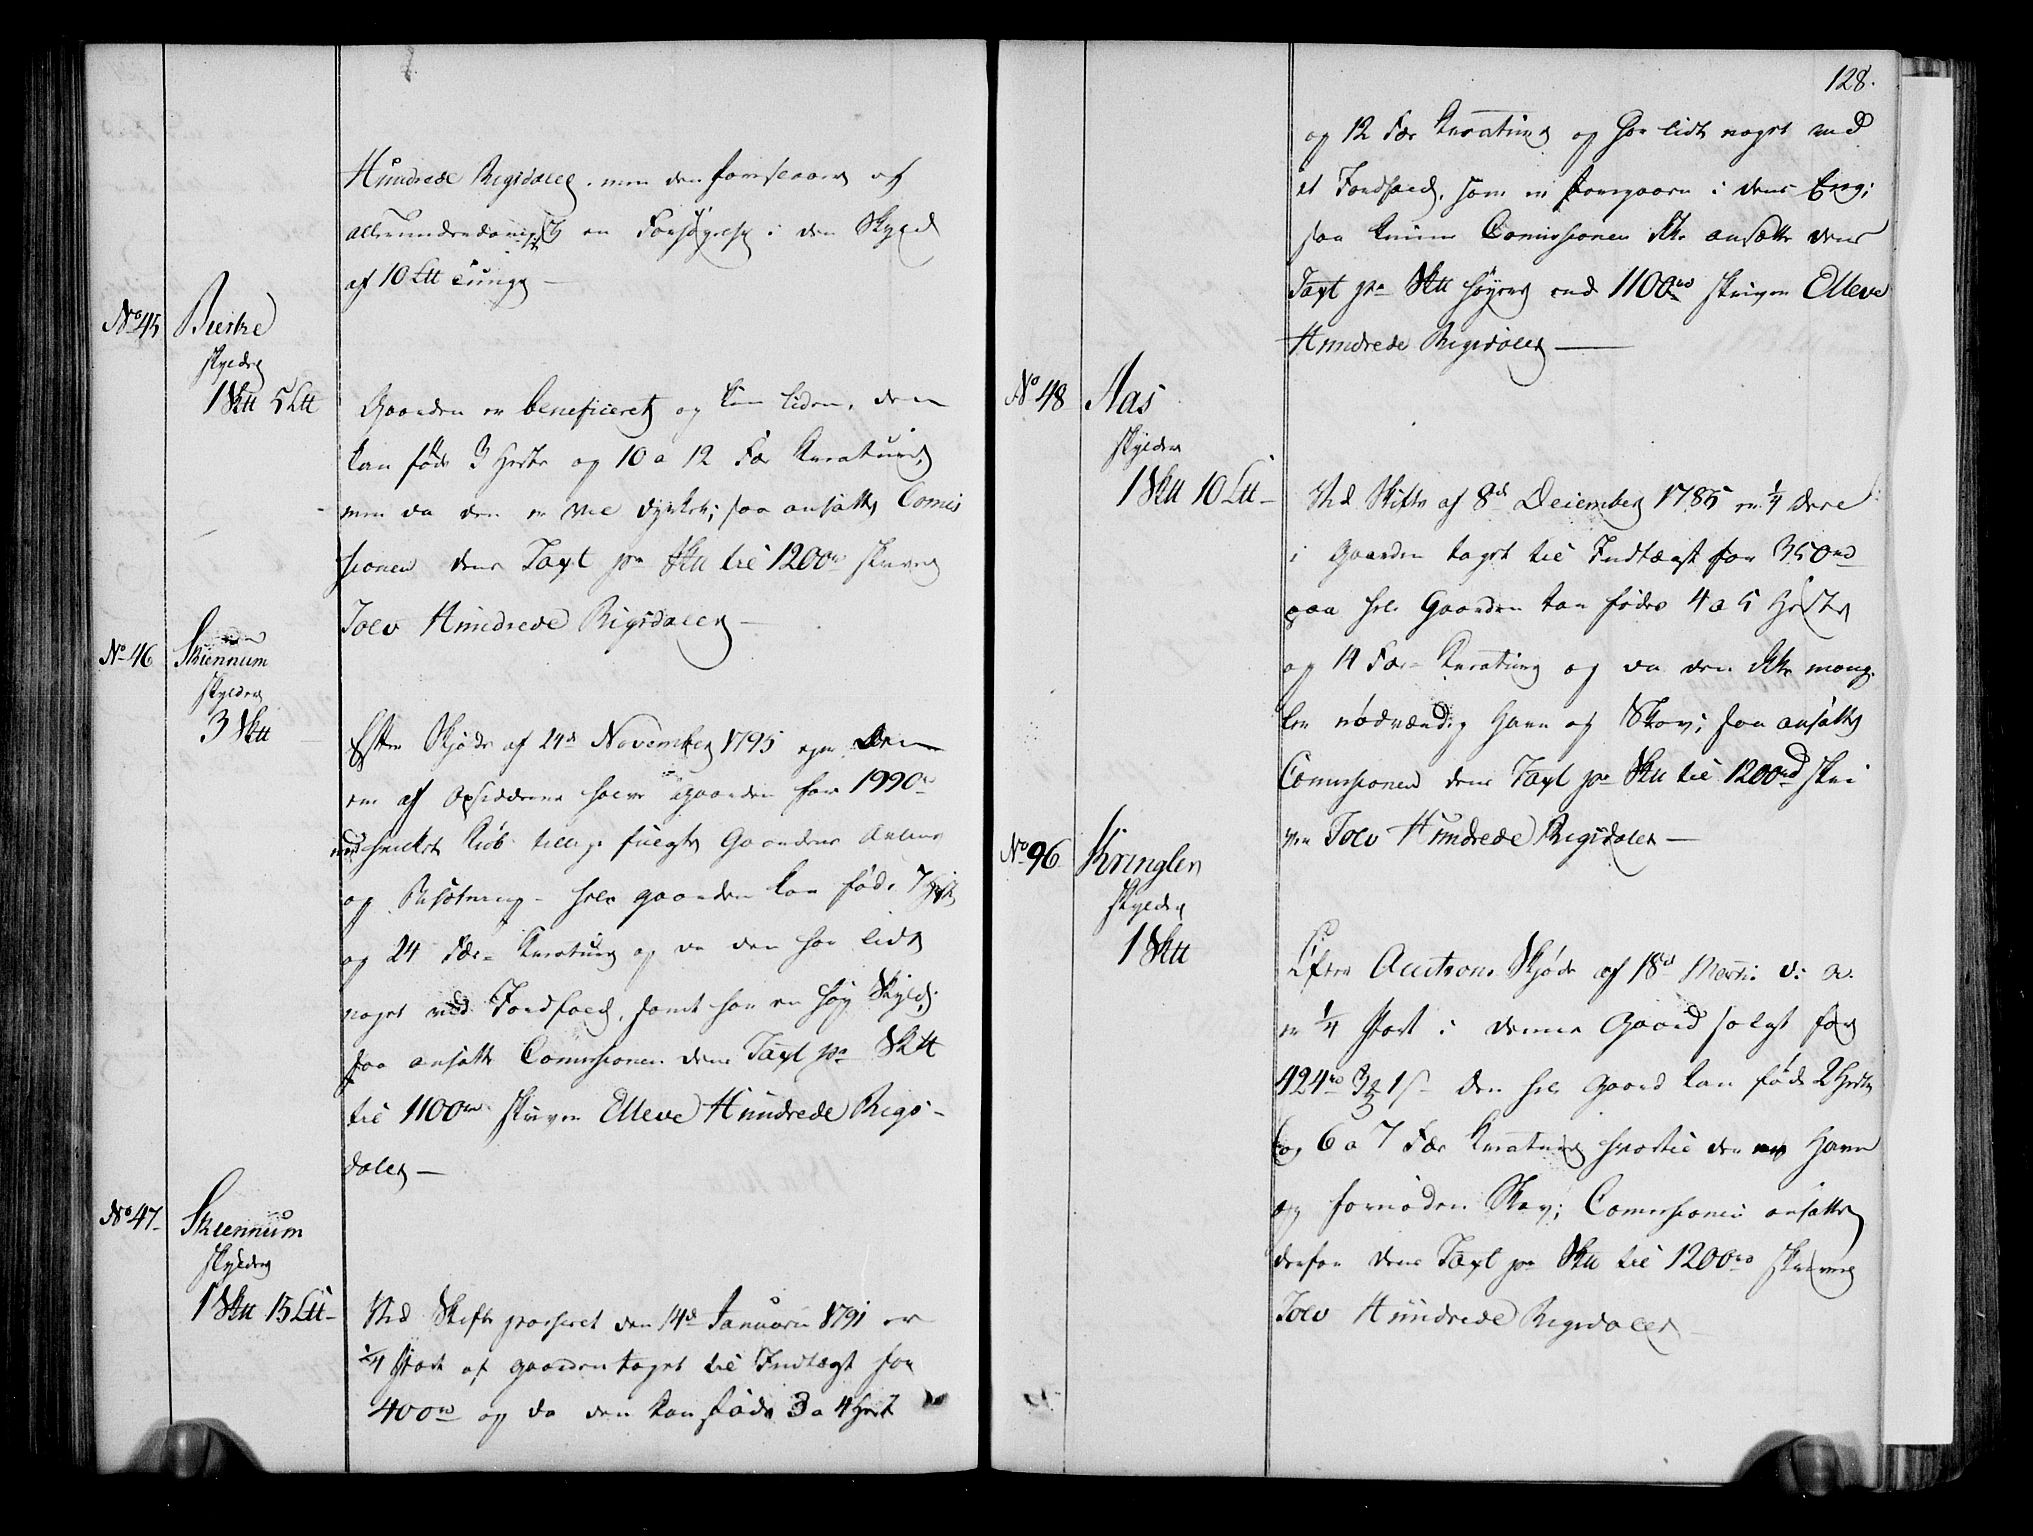 Hundrede Rigsdaler, men den foreslaaes af
allerunderdanigst en Forhøyelse i den Skyld
af 10 Ltt Tunge —
No 45 Bierke
skylder
1 Skt 5 Ltt
Gaarden er beneficeret og kun liden, den
kan føde 3 Heste og 10 a 12 Fæ Kreature,
men da den er vel dyrket; saa ansætter Comis
sionen dens Taxt pr Skt til 1200rd skriver
Tolv Hundrede Rigsdaler —
No 46 Skiennum
skylder
3 Skt
Efter Skjøde af 24d November 1795 eger Den
ene af Opsidderne halve Gaarden for 1990rd
med hvilket Kiøb tillige fulgte Gaardens Avling
og Besætning - hele Gaarden kan føde 7 Heste
og 24 Fæ- Kreature og da den har lidt
noget ved Jordfald, samt har en høy Skyld;
saa ansætter Comissionen dens Taxt pr Skt
til 1100rd skriver Elleve Hundrede Rigs-
daler —
No 47 Skiennum
skylder
1 Skt 15 Ltt
Ved Skifte passeret den 14d Januarii 1791 er
1/4 Part af Gaarden taget til Indtægt for
400rd og da den kan føde 3 a 4 Heste
128.
og 12 Fæ Kreature og har lidt noget ved
et Jordfald, som er foregaaen i dens Eng;
saa kunne Comissionen ikke ansætte dens
Taxt pr Skt høyere end 1100rd skriver Elleve
Hundrede Rigsdaler —
No 48 Aas
skylder
1 Skt 10 Ltt
Ved Skifte af 8d December 1785 er 1/4 Deel
i Gaarden taget til Indtægt for 350rd
paa hele Gaarden kan fødes 4 a 5 Heste
og 14 Fæ- Kreature og da den ikke mang-
ler nødvændig Havn og Skov; saa ansætter
Comissionen dens Taxt pr Skt til 1200rd skri
ver Tolv Hundrede Rigsdaler —
No 96 Kringler
skylder
1 Skt
Efter Auctions Skjøde af 18d Martii d: a:
er 1/4 Part i denne Gaard solgt for
424rd 3 1 s den hele Gaard kan føde 2 Heste
og 6 a 7 Fæ Kreature hvortil den Havn
og fornøden Skov; Comissionen ansætter
derfor dens Taxt pr Skt til 1200rd skriver
Tolv Hundrede Rigsdaler —